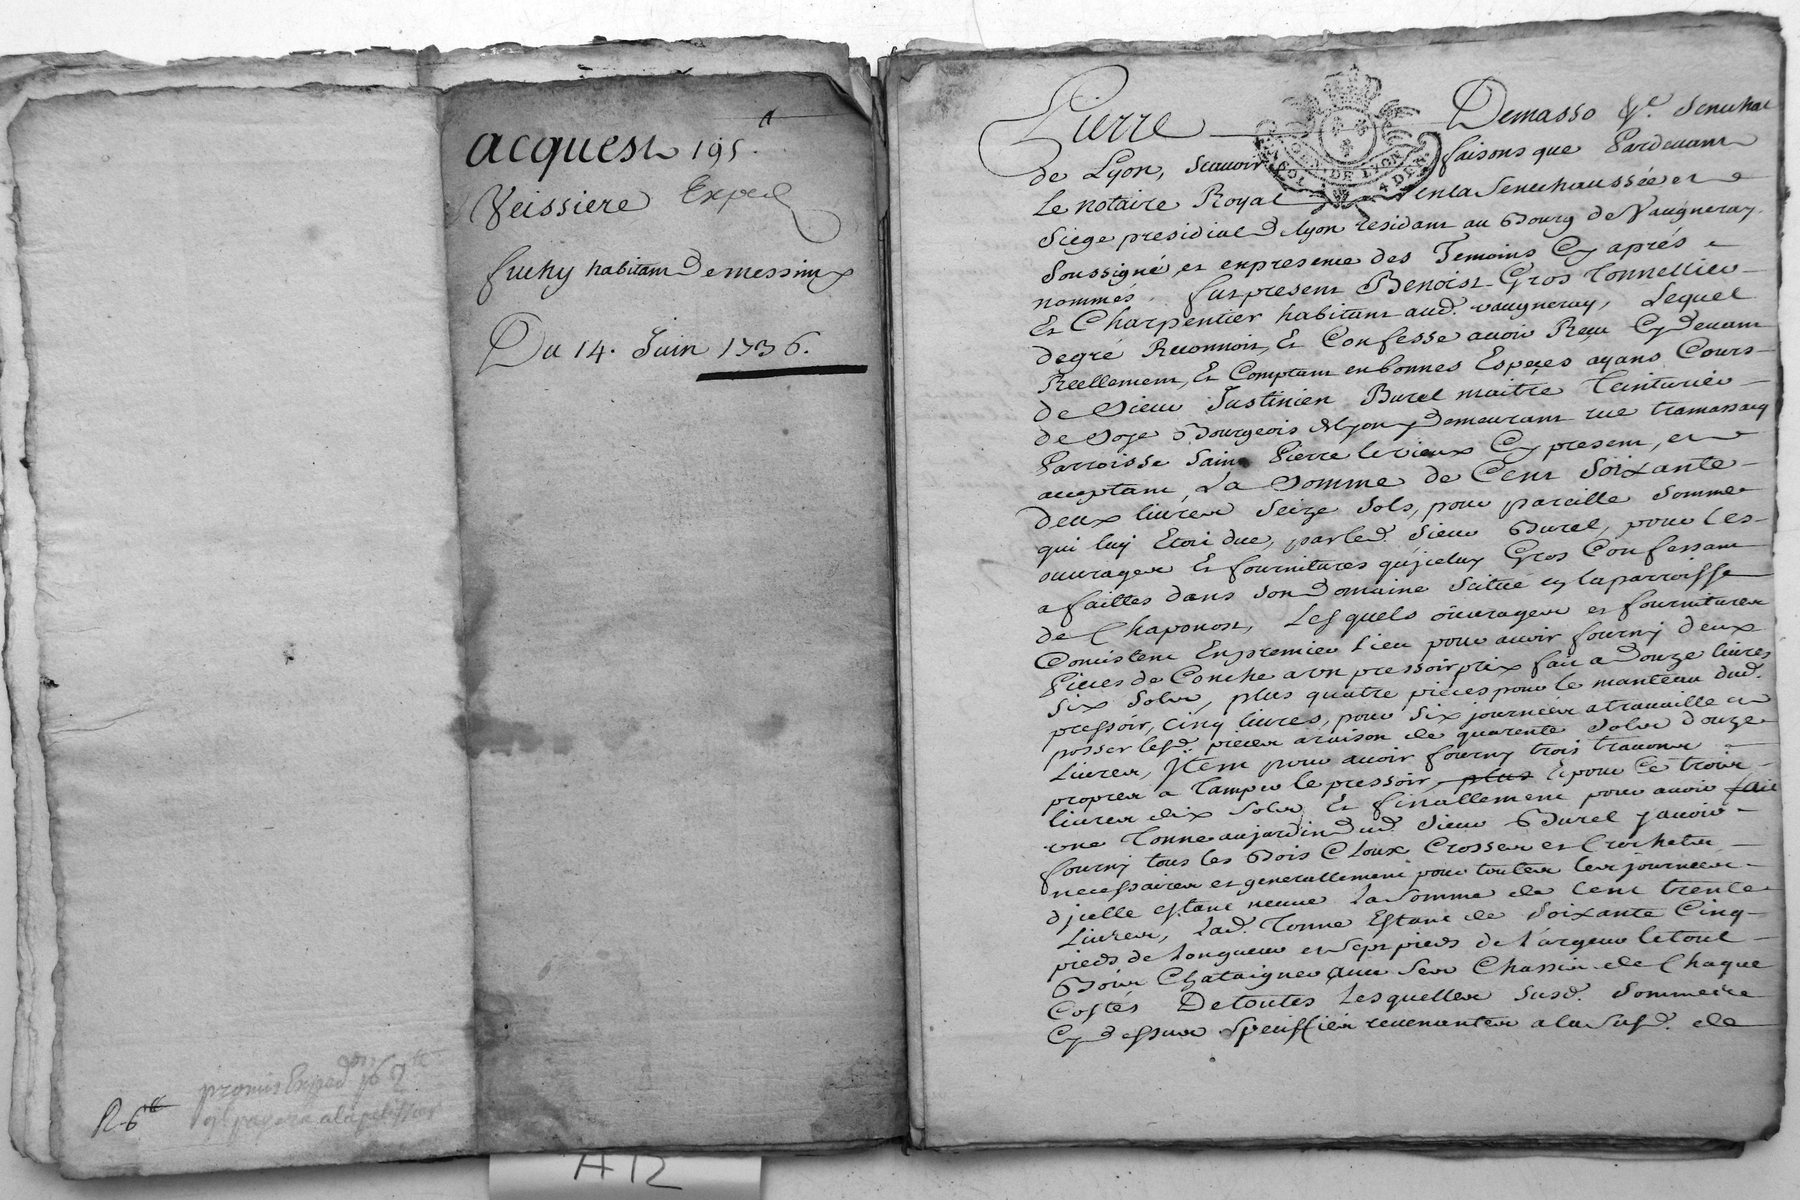 acquest 195.tt
Veissiere Exped
fuchy habitant De messimy
Du 14. Juin 1736.
R 6tt
promis Exped
payera a la
A12
Pierre Demasso &c. Senechal
GEN. DE LYON
4 DEN.
de Lyon, scavoir faisons que Pardevant
Le notaire Royal en la Senechaussée et
Siege presidial d Lyon residant au Bourg de Vaugneray
Soussigné, et en presence des Temoins Cy aprés
nommés. fut present Benoist Gros Tonnellier
Et Charpentier habitant aud. vaugneray, Lequel
degré Reconnoit, Et Confesse avoir Receu Cy devant
Reellement, Et Comptant en bonnes Especes ayans Cours
de Sieur Justinien Burel maitre Teinturier
de Soye Bourgeois d Lyon y Demeurant rue tramassac
Parroisse Saint Pierre le vieux Cy present, et
acceptant, La Somme de Cent Soixante
deux livres Seize Sols, pour pareille Somme
qui luy Etoit due, par led. Sieur Burel, pour les
ouvrages Et fournitures qu'jceluy Gros Confessant
a faittes dans son Domaine Scitué en la parroisse
de Chaponost, Lesquels ouvrages et fournitures
Consistent En premier Lieu pour avoir fourny deux
Pieces de Conche a un pressoir prix fait a Douze livres
Six Sols, plus quatre pieces pour le manteau dud.
pressoir, Cinq livres, pour Six journées a travaille et
posser lesd. pieces a raison de quarente Sols Douze
Livres, Jtem pour avoir fourny trois travons
propres a Tamper le pressoir, plus Et pour Ce trois
livres dix Sols, Et finallement pour avoir fait
une Tonne au jardin dud. Sieur Burel y avoir
fourny tous les Bois Cloux Crosses et Crochets
necessaires et generallement pour toutes les journées
djcelle estant neuve La Somme de Cent trente
Livres, Lad. Tonne Estant de Soixante Cinq
pieds de Longueur et Sept pieds de L'argeur le tout
Bois Chataignes avec Ses Chassis de Chaque
Costés De toutes Lesquelles susd. Sommes
Cy dessus Speciffiés revenantes a la Susd. de